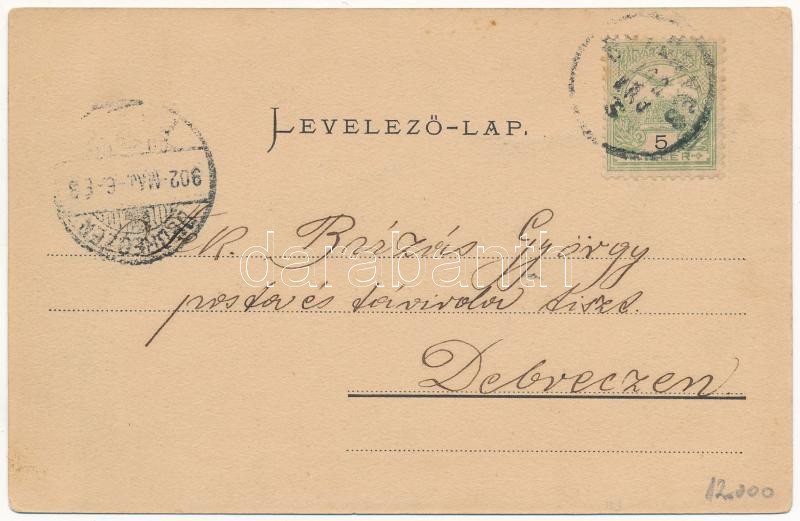 LEVELEZŐ-LAP.
5
FILLÉR
902. MÁJ. 6.
DEBRECZEN
Tk. Búzás György
posta és távirda tiszt.
Debreczen.
darabanth
12.000